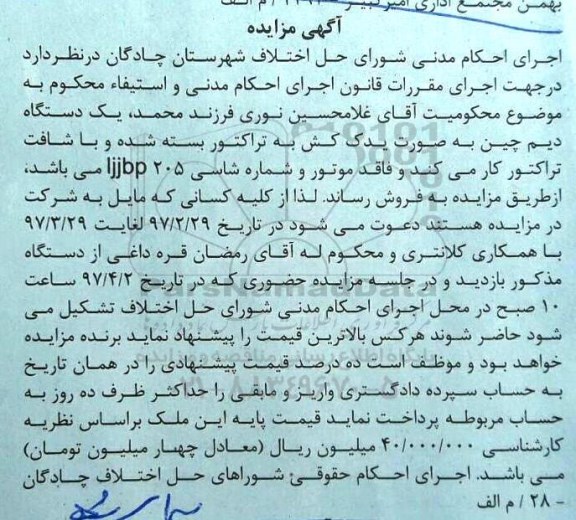 بهمن مجتمع اداری امیرکبیر / م الف
آگهی مزایده
اجرای احکام مدنی شورای حل اختلاف شهرستان چادگان درنظردارد
درجهت اجرای مقررات قانون اجرای احکام مدنی و استیفاء محکوم به
موضوع محکومیت آقای غلامحسین نوری فرزند محمد، یک دستگاه
دیم چین به صورت یدک کش به تراکتور بسته شده و با شافت
تراکتور کار می کند و فاقد موتور و شماره شاسی ljjbp ۲۰۵ می باشد،
ازطریق مزایده به فروش رساند. لذا از کلیه کسانی که مایل به شرکت
در مزایده هستند دعوت می شود در تاریخ ۹۷/۲/۲۹ لغایت ۹۷/۳/۲۹
با همکاری کلانتری و محکوم له آقای رمضان قره داغی از دستگاه
مذکور بازدید و در جلسه مزایده حضوری که در تاریخ ۹۷/۴/۲ ساعت
۱۰ صبح در محل اجرای احکام مدنی شورای حل اختلاف تشکیل می
شود حاضر شوند هرکس بالاترین قیمت را پیشنهاد نماید برنده مزایده
خواهد بود و موظف است ده درصد قیمت پیشنهادی را در همان تاریخ
به حساب سپرده دادگستری واریز و مابقی را حداکثر ظرف ده روز به
حساب مربوطه پرداخت نماید قیمت پایه این ملک براساس نظریه
کارشناسی ۴۰/۰۰۰/۰۰۰ میلیون ریال (معادل چهار میلیون تومان)
می باشد. اجرای احکام حقوقی شوراهای حل اختلاف چادگان
- ۲۸ / م الف